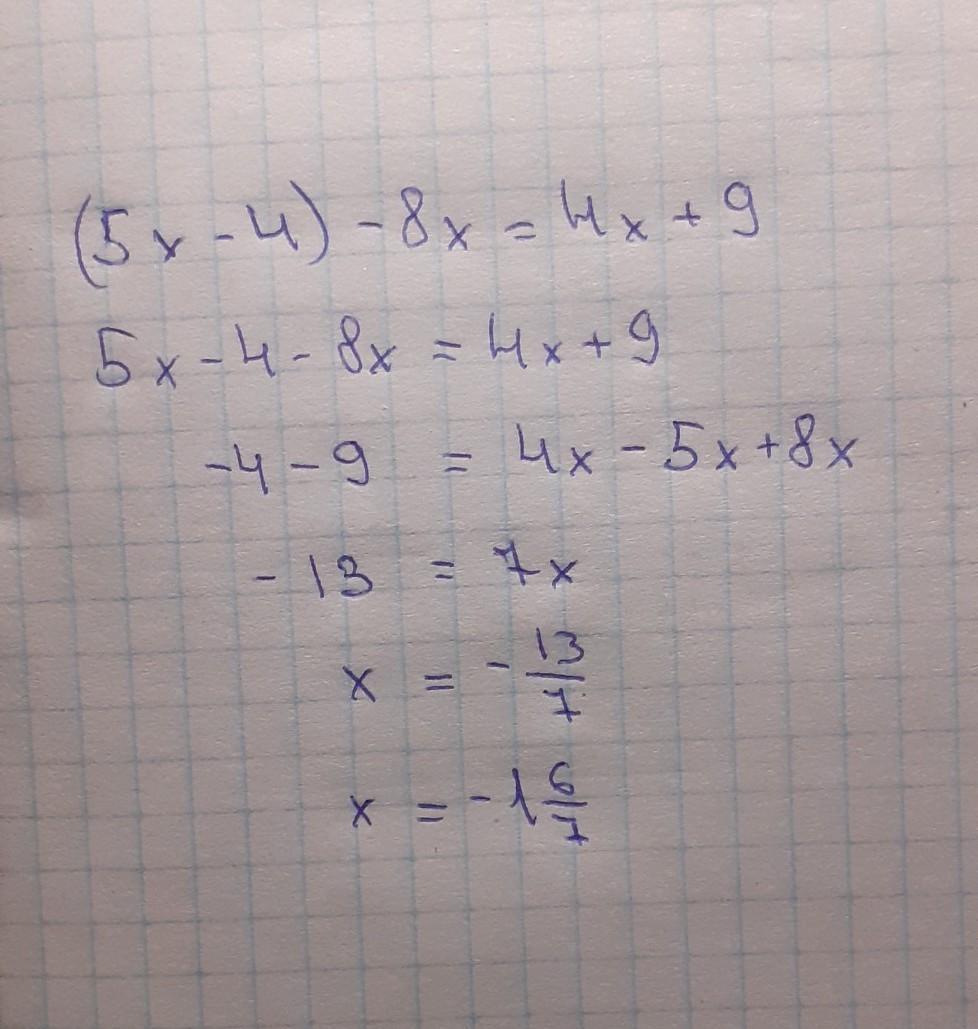 (5x - 4) - 8x = 4x + 9
5x - 4 - 8x = 4x + 9
-4 - 9 = 4x - 5x + 8x
- 13 = 7x
x = - 13/7
x = -1 6/7